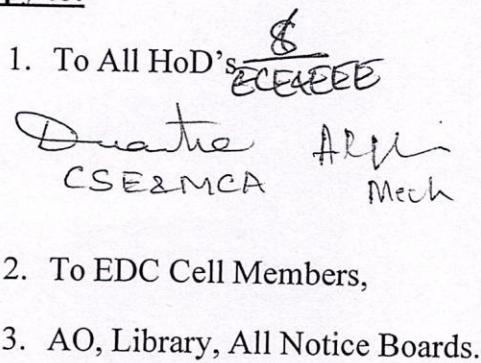 1. To All HoD's
ECE&EEE
CSE&MCA Mech
2. To EDC Cell Members,
3. AO, Library, All Notice Boards.